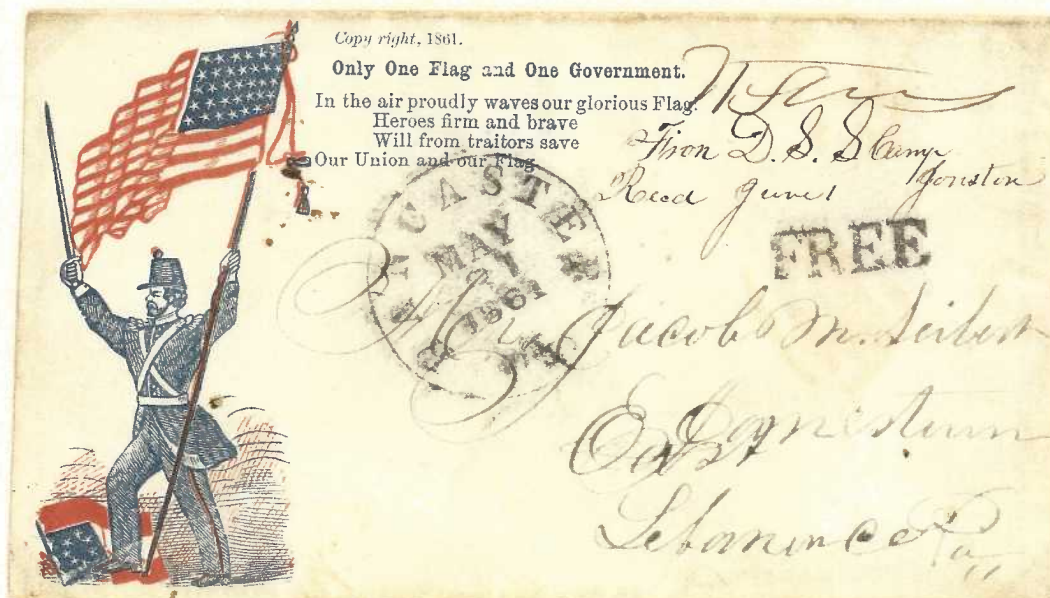 Copy right, 1861.
Only One Flag and One Government.
In the air proudly waves our glorious Flag!
Heroes firm and brave
Will from traitors save
Our Union and our Flag.
From D. S. S Camp
Recd June 1
FREE
LANCASTER
MAY
1861
Pa
Mr. Jacob M. Seibert
East
Lebanon co Pa,,